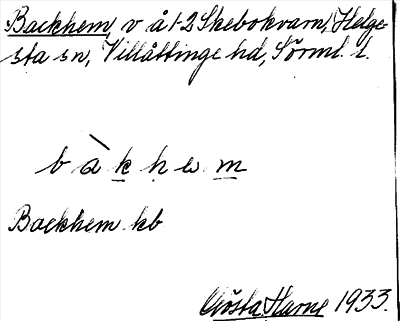 Backhem, v å 1-2 Skebokvarn, Helge-
sta sn, Villåttinge hd, Sörml. l.
b à k h e m
Backhem kb
Gösta Harne 1933.